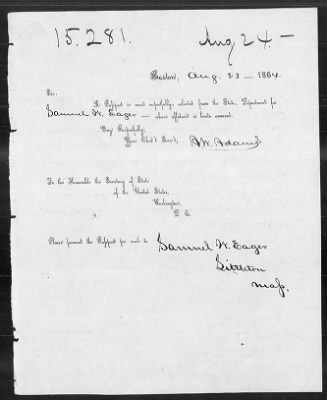 15.281.
Aug 24.—
Boston, Aug. 23 - 1884.
Sir:
A Passport is most respectfully solicited from the State Department for
Samuel W. Eager — whose affidavit is hereto annexed.
Very Respectfully,
Your Obed't Serv't, A.W. Adams
To the Honorable the Secretary of State
of the United States,
Washington,
D. C.
Please forward the Passport for mail to
Samuel W. Eager
Littleton
Mass.